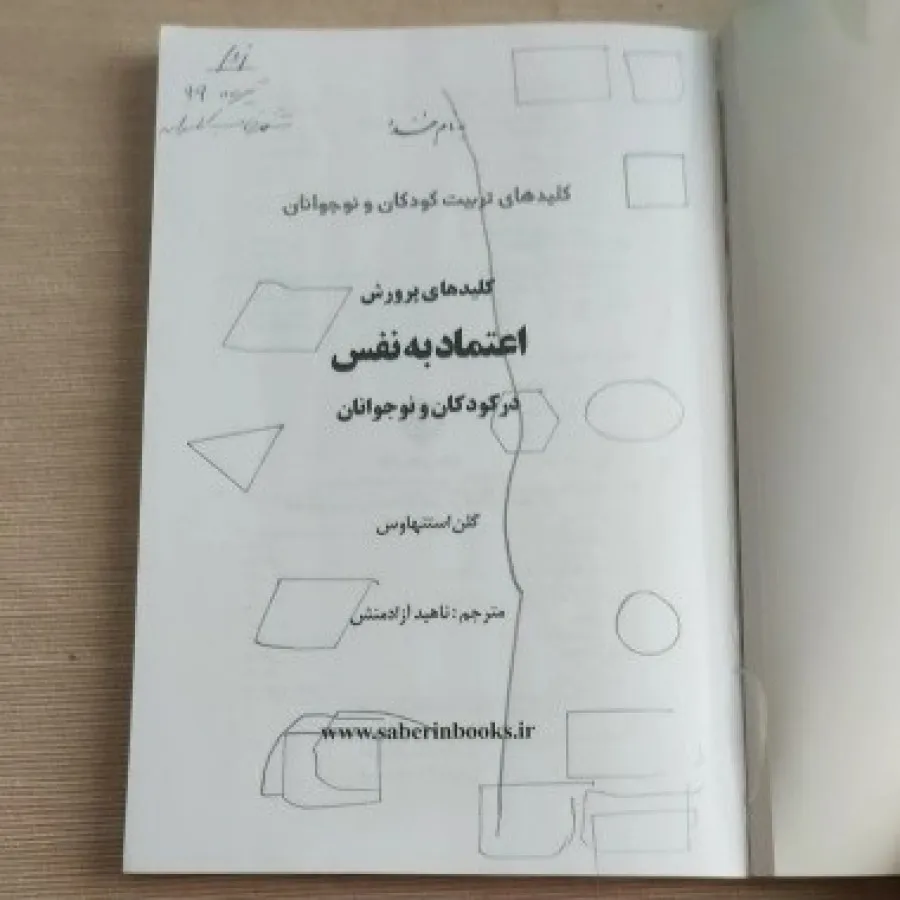 ۹۹
بنام خدا
کلیدهای تربیت کودکان و نوجوانان
کلیدهای پرورش
اعتماد به نفس
در کودکان و نوجوانان
گلن استنهاوس
مترجم: ناهید آزادمنش
www.saberinbooks.ir